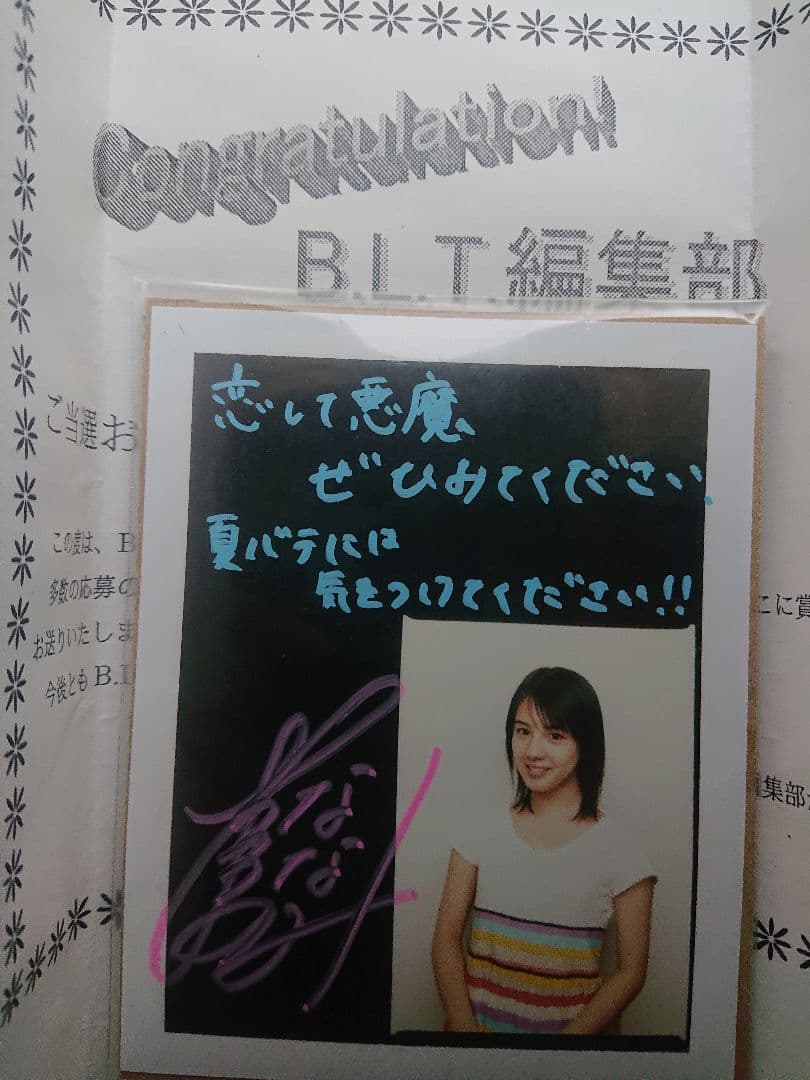 Congratulation!
B.L.T.編集部
ご当選お
この度は、B
多数の応募の
お送りいたしま
今後ともB.L
こに賞
集部
恋して悪魔、
ぜひみてください.
夏バテには
気をつけてください!!
なな